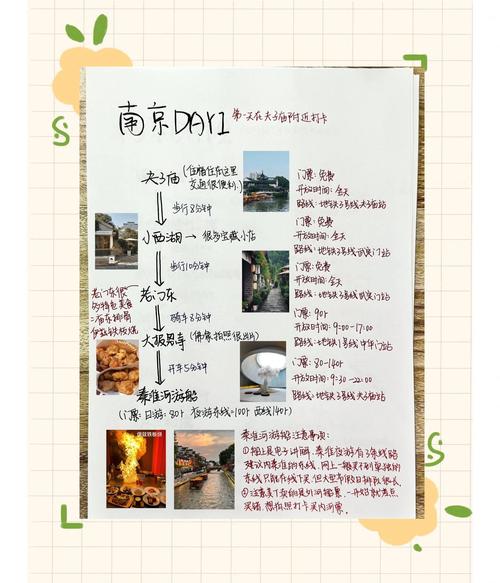 南京DAY1 第一天在夫子庙附近打卡
夫子庙(住宿住在这里
交通很便利)
步行8分钟
小西湖→很多宝藏小店
步行10分钟
老门东
骑车3分钟
大报恩寺(佛像拍照很出片)
开车5分钟
秦淮河游船
(门票:日游:80r 夜游东线=100r 西线140r)
老门东很
多特色美食
门票:免费
开放时间:全天
路线:地铁3号线夫子庙站
门票:免费
开放时间:全天
路线:地铁3号线武定门站
门票:免费
开放时间:全天
路线:地铁3号线武定门站
门票:90r
开放时间:9:00-17:00
路线:地铁1号线中华门站
门票:80-140r
开放时间:9:30-22:00
路线:地铁3号线夫子庙站
秦淮河游船注意事项:
①船上是电子讲解,秦淮夜游有3条线路
建议内秦淮的东线,网上一般买不到单独的
东线只能在线下买,但大型节假日排队很长,
买错,想拍照打卡买内河票.